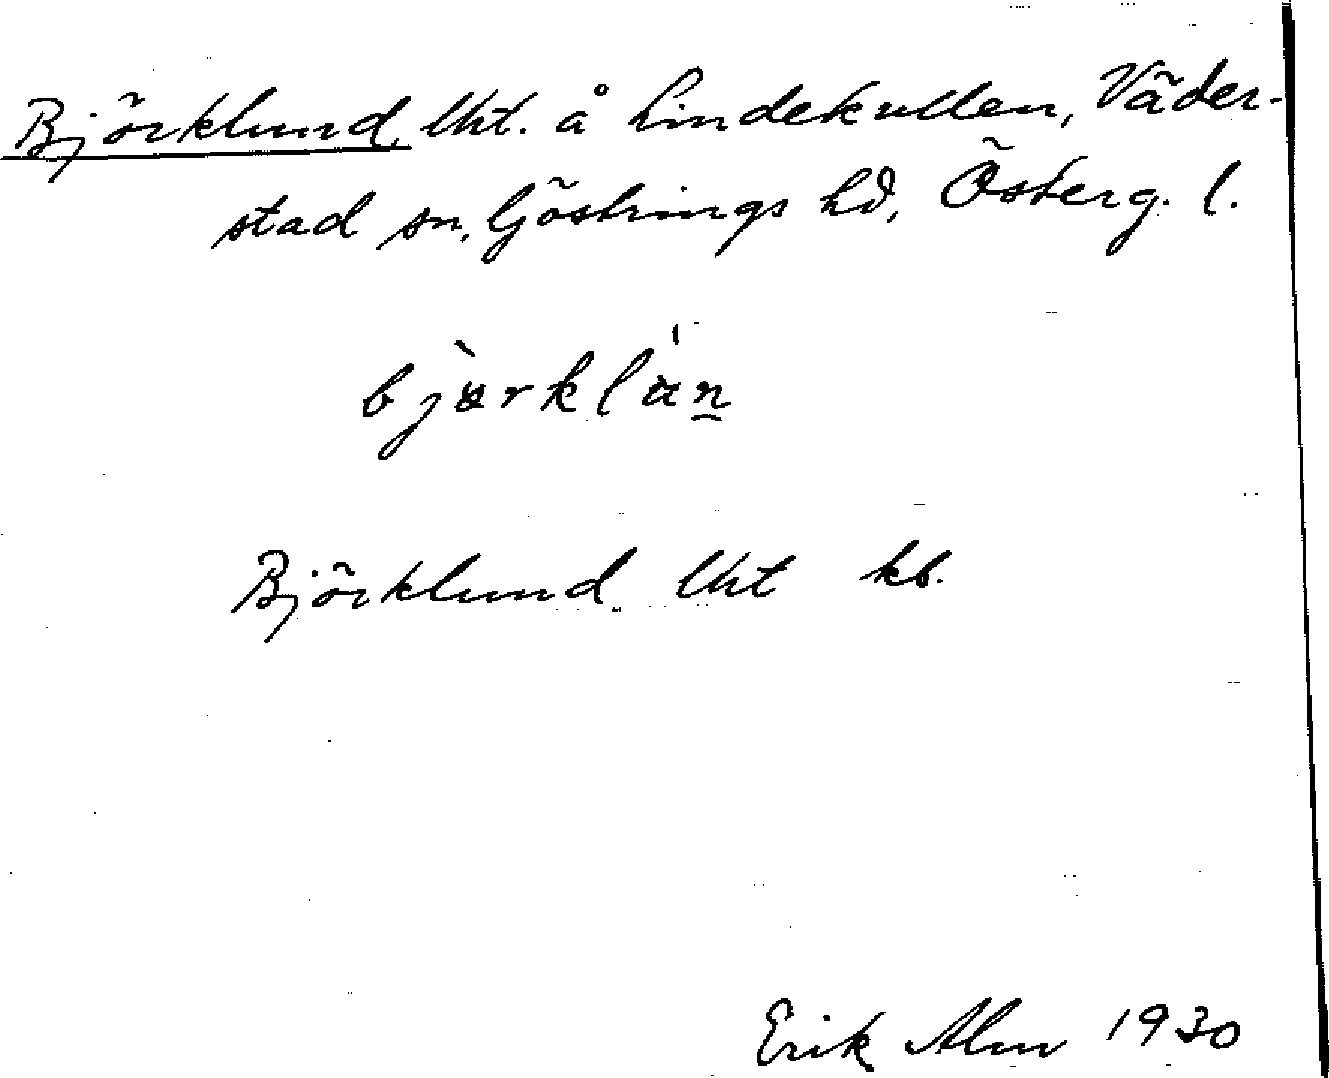 Björklund, lht. å Lindekullen, Väder-
stad sn, Göstrings hd, Österg. l.
Björklund lht kb.
Erik Alm 1930